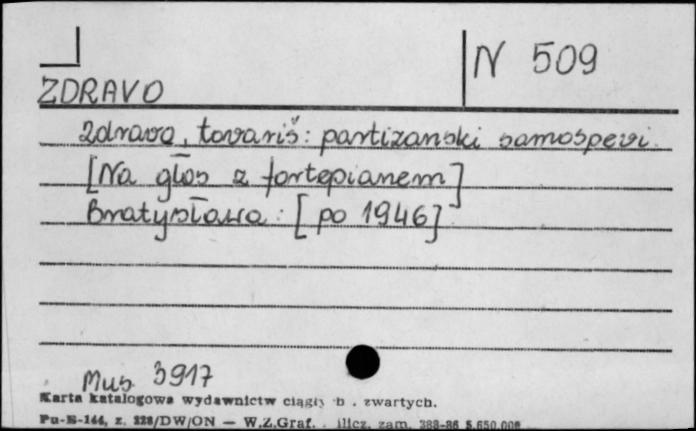 N 509
ZDRAVO
Zdravo, tovariš: partizanski samospevi.
[Na głos z fortepianem]
Bratysława: [po 1946]
Mus. 3917
Karta katalogowa wydawnictw ciągły b . zwartych.
Pu-E-144, z. 228/DW/ON — W.Z.Graf. . zam. 388-86 5.650.000